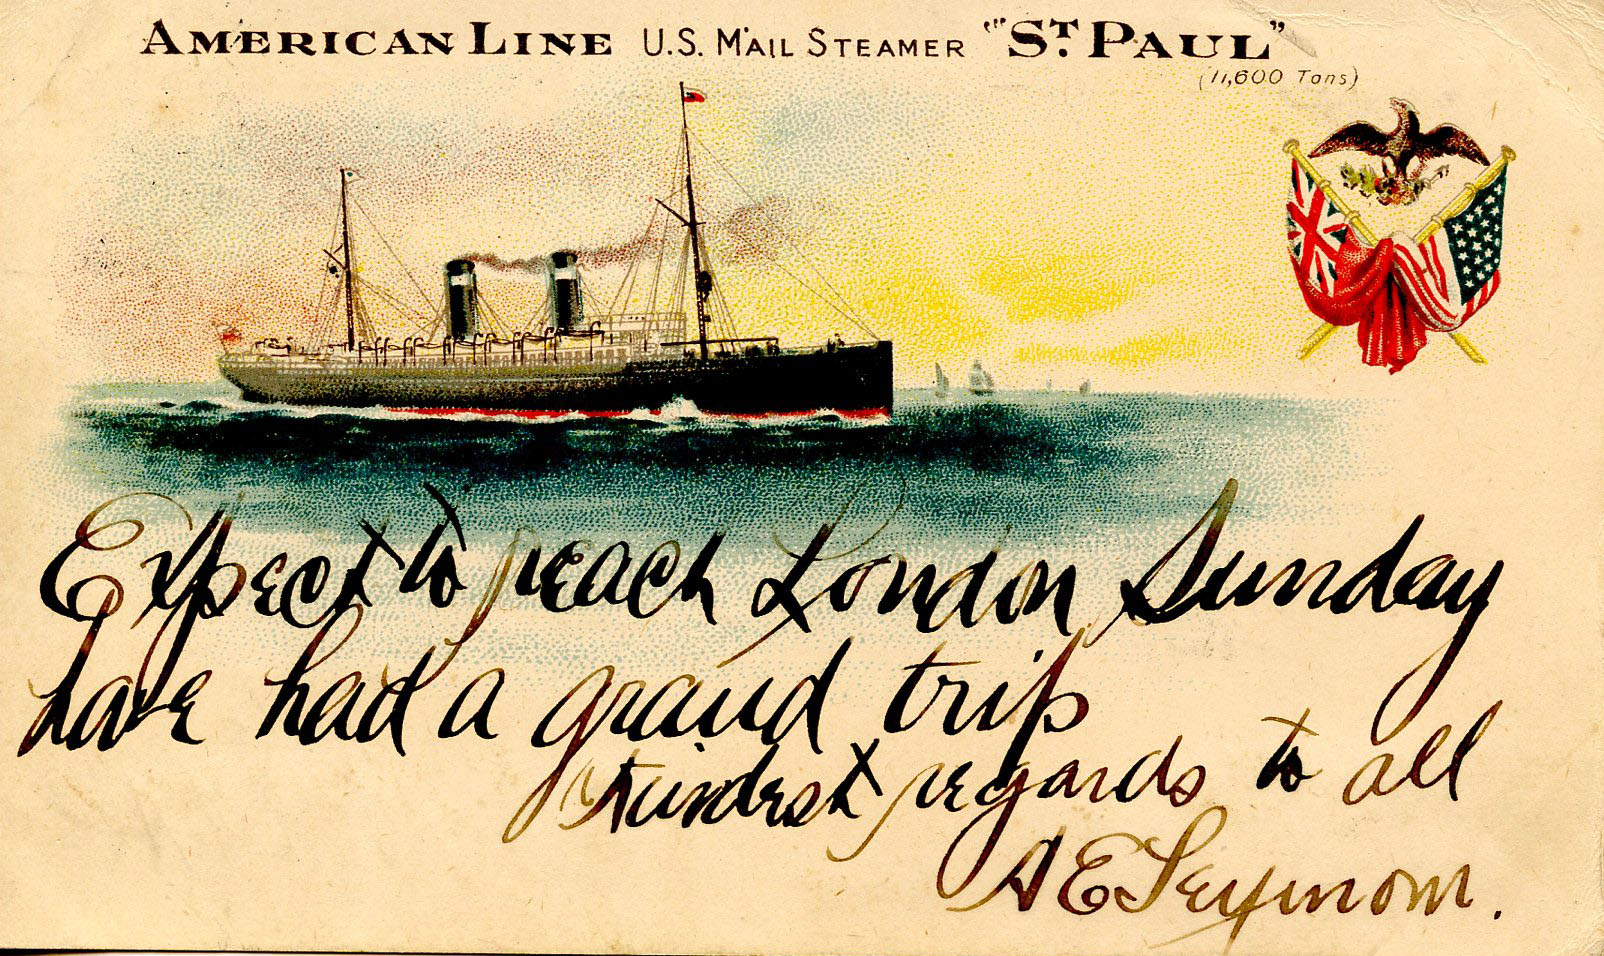 AMERICAN LINE U.S. MAIL STEAMER "ST PAUL"
(11,600 Tons)
Expect to reach London Sunday
have had a grand trip
Kindest regards to all
A E Seymour.